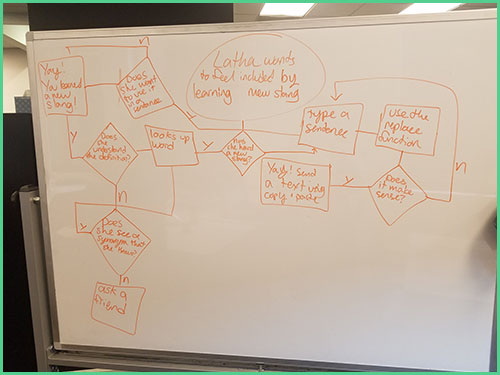 Latha wants
to feel included by
learning new slang
n
Yay!
You learned
a new
slang!
Does
she want
to use it
in a
sentence
type a
sentence
use the
replace
function
n
Does
she
understand
the definition?
y
looks up
word
y
Has
she heard
a new
slang?
Yay! send
a text using
copy + paste
y
Does
it make
sense?
n
y
Does
she see a
synonym that
she knows?
n
ask a
friend